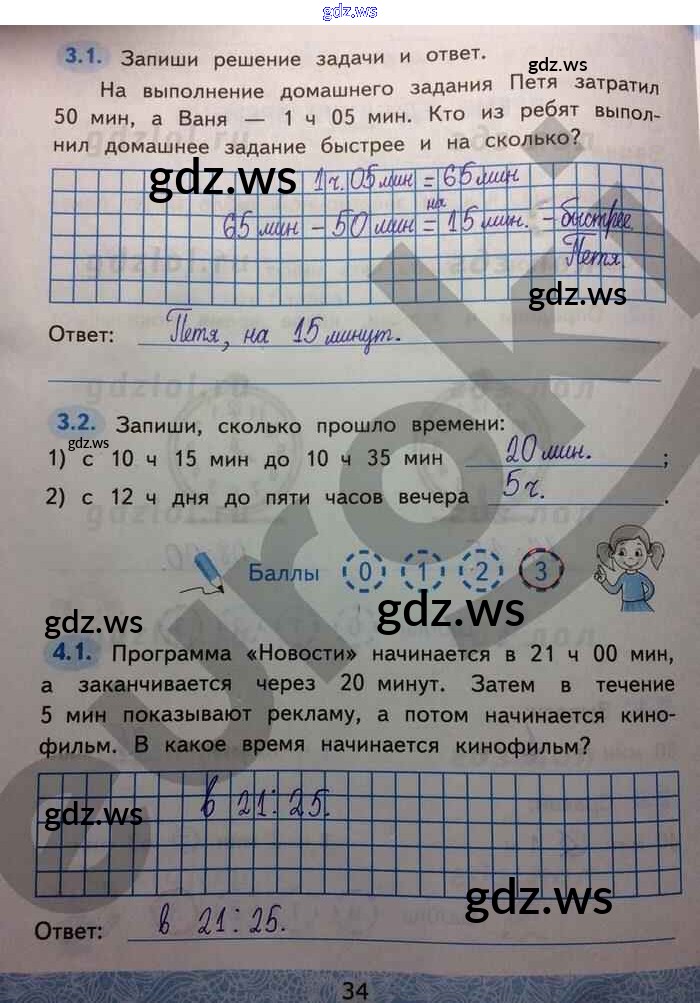 gdz.ws
3.1. Запиши решение задачи и ответ.
gdz.ws
На выполнение домашнего задания Петя затратил
50 мин, а Ваня — 1 ч 05 мин. Кто из ребят выпол-
нил домашнее задание быстрее и на сколько?
gdz.ws
1ч. 05 мин = 65 мин
на
65 мин - 50 мин = 15 мин. - быстрее
Петя
gdz.ws
Ответ: Петя, на 15 минут.
3.2. Запиши, сколько прошло времени:
gdz.ws
1) с 10 ч 15 мин до 10 ч 35 мин 20 мин. ;
2) с 12 ч дня до пяти часов вечера 5 ч. .
Баллы 0 1 2 3
gdz.ws
gdz.ws
4.1. Программа «Новости» начинается в 21 ч 00 мин,
а заканчивается через 20 минут. Затем в течение
5 мин показывают рекламу, а потом начинается кино-
фильм. В какое время начинается кинофильм?
в 21:25.
gdz.ws
gdz.ws
Ответ: в 21:25.
34